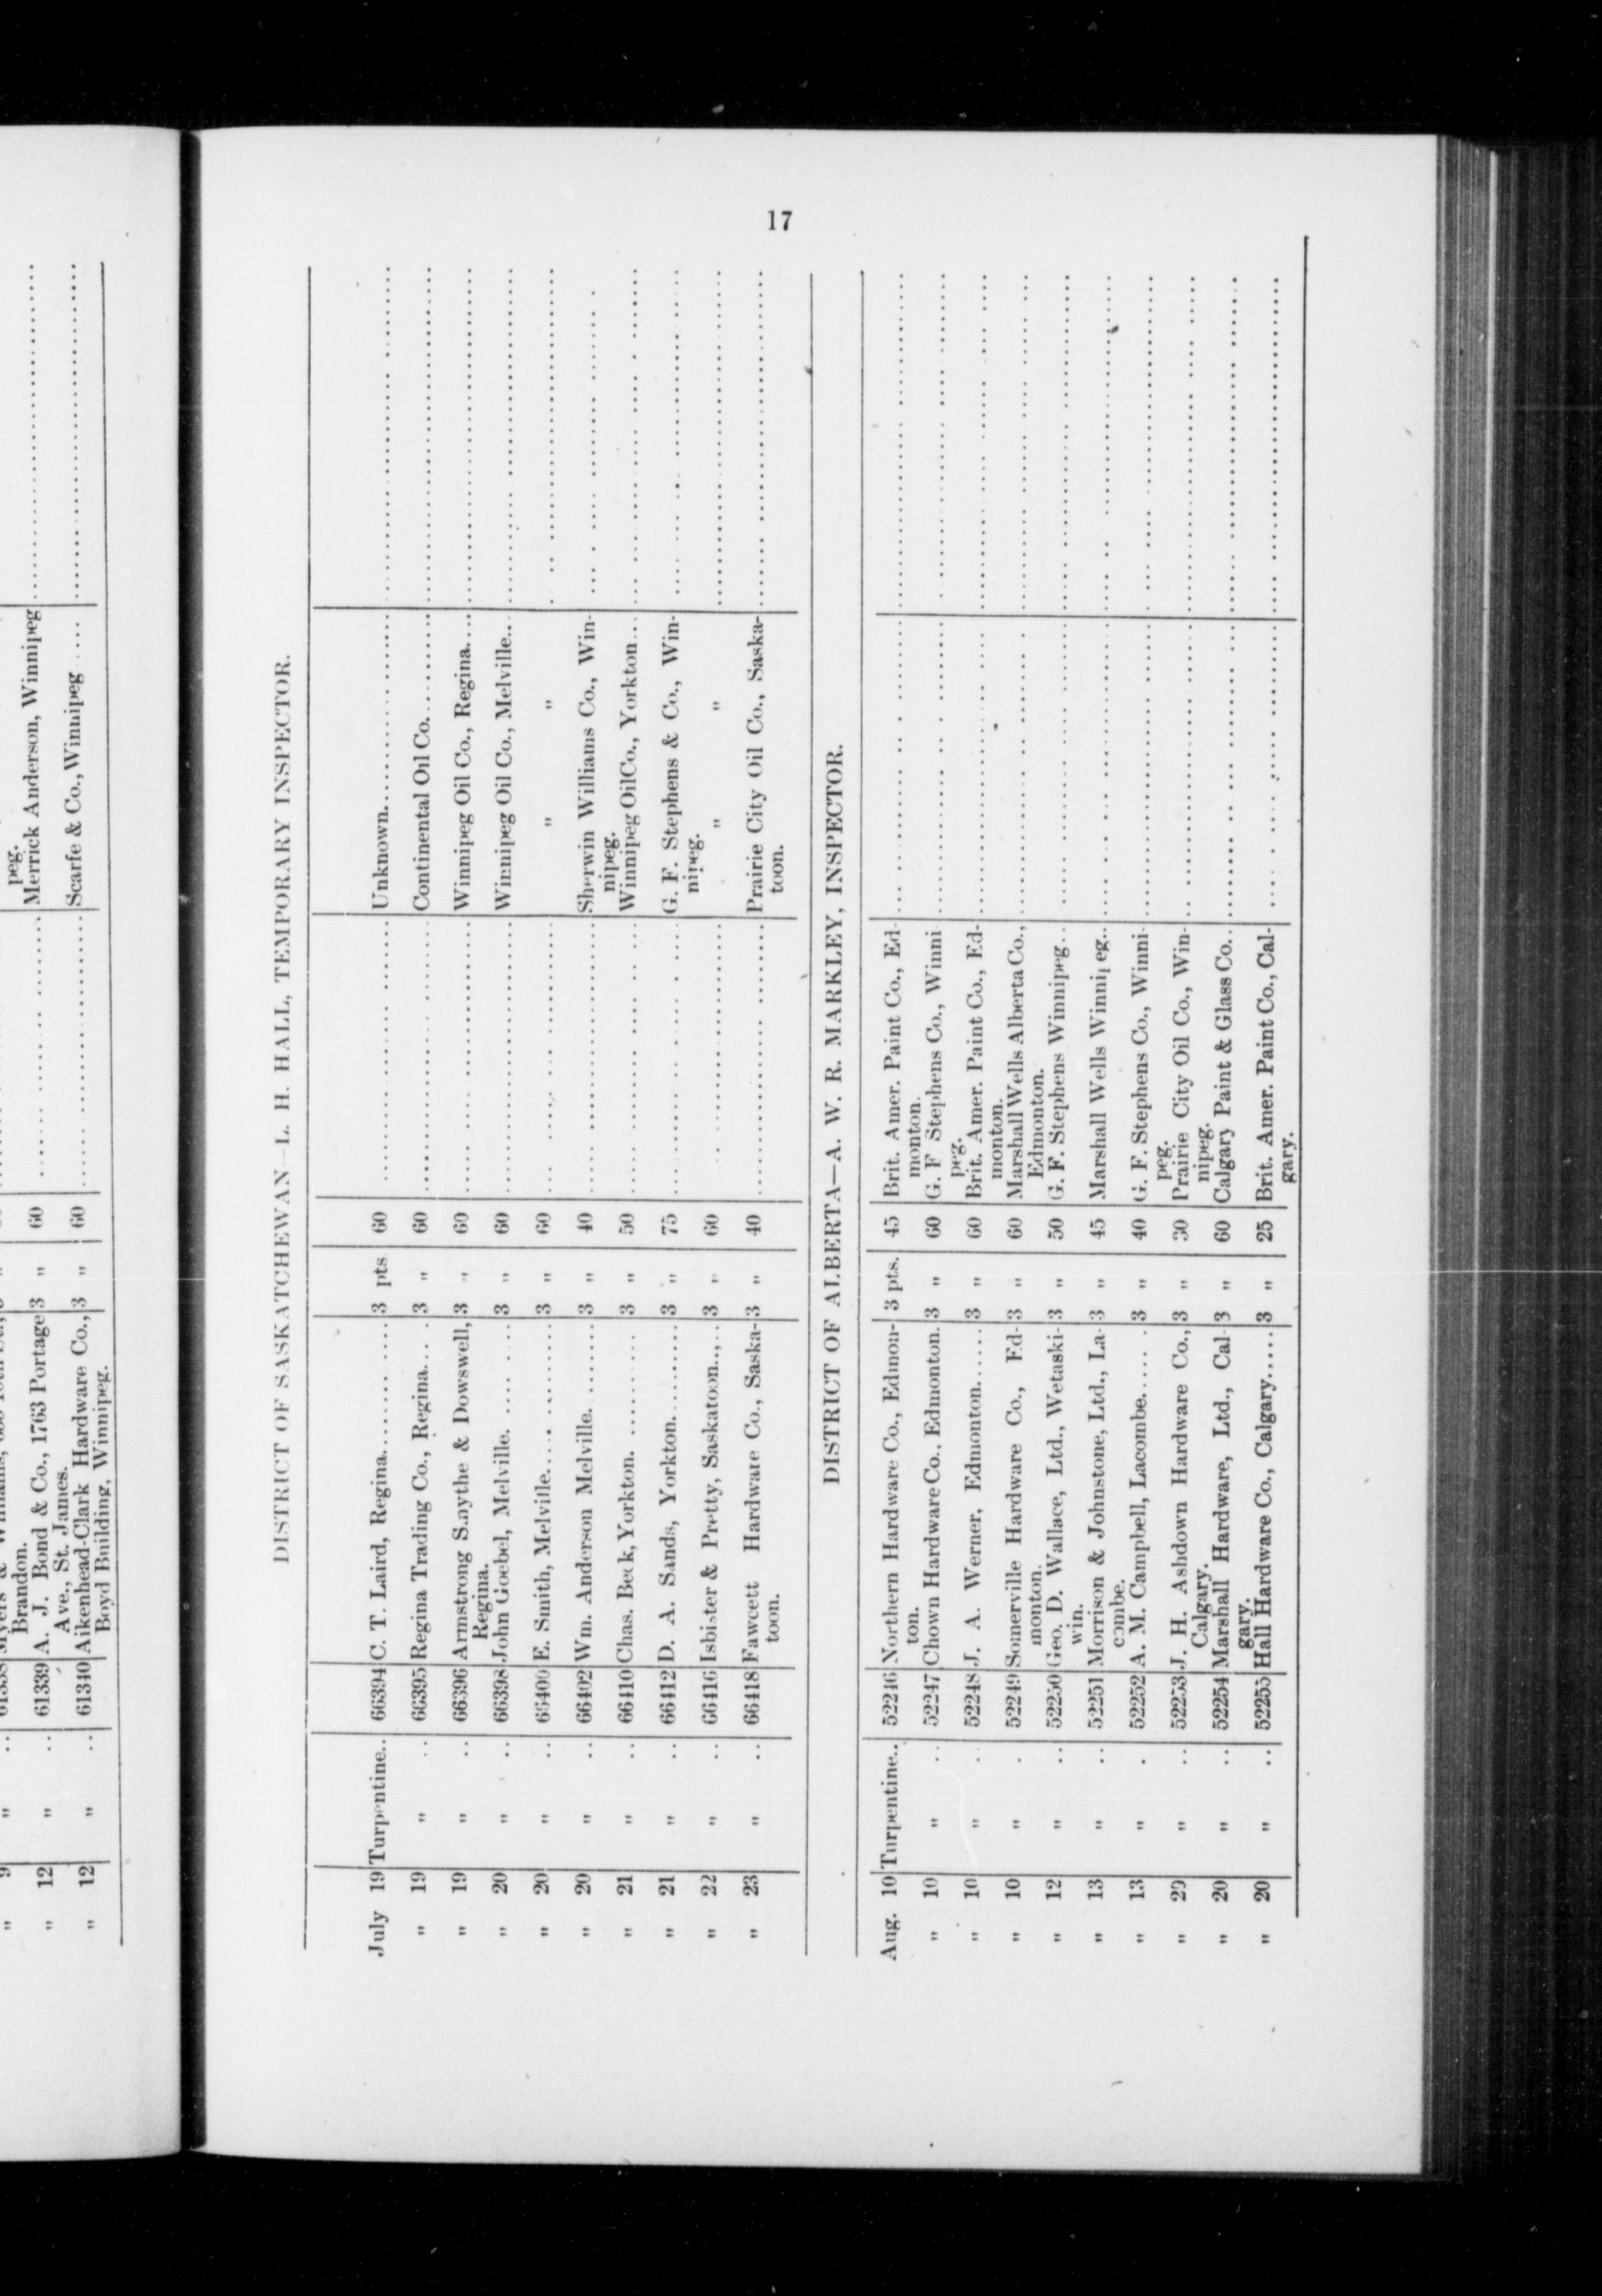 peg.
Merrick Anderson, Winnipeg
Scarfe & Co., Winnipeg ....
60
60
3 "
3 "
Brandon.
61339 A. J. Bond & Co., 1763 Portage
Ave., St. James.
61340 Aikenhead-Clark Hardware Co.,
Boyd Building, Winnipeg.
" 9 "
" 12 " ..
" 12 " ..
17
DISTRICT OF SASKATCHEWAN—L. H. HALL, TEMPORARY INSPECTOR.
July 19 Turpentine.. 66394 C. T. Laird, Regina........ 3 pts 60 ........ Unknown........
" 19 " .. 66395 Regina Trading Co., Regina.... 3 " 60 ........ Continental Oil Co........
" 19 " .. 66396 Armstrong Smythe & Dowswell, 3 " 60 ........ Winnipeg Oil Co., Regina....
Regina.
" 20 " .. 66398 John Goebel, Melville........ 3 " 60 ........ Winnipeg Oil Co., Melville...
" 20 " .. 66400 E. Smith, Melville........ 3 " 60 ........ " "
" 20 " .. 66402 Wm. Anderson Melville........ 3 " 40 ........ Sherwin Williams Co., Win-
nipeg.
" 21 " .. 66410 Chas. Beck, Yorkton........ 3 " 50 ........ Winnipeg Oil Co., Yorkton...
" 21 " .. 66412 D. A. Sands, Yorkton........ 3 " 75 ........ G. F. Stephens & Co., Win-
nipeg.
" 22 " .. 66416 Isbister & Pretty, Saskatoon.... 3 " 60 ........ " "
" 23 " .. 66418 Fawcett Hardware Co., Saska- 3 " 40 ........ Prairie City Oil Co., Saska-
toon. toon.
DISTRICT OF ALBERTA—A. W. R. MARKLEY, INSPECTOR.
Aug. 10 Turpentine.. 52246 Northern Hardware Co., Edmon- 3 pts. 45 Brit. Amer. Paint Co., Ed- ........
ton. monton.
" 10 " .. 52247 Chown Hardware Co., Edmonton. 3 " 60 G. F Stephens Co., Winni ........
peg.
" 10 " .. 52248 J. A. Werner, Edmonton...... 3 " 60 Brit. Amer. Paint Co., Ed- ........
monton.
" 10 " . 52249 Somerville Hardware Co., Ed- 3 " 60 Marshall Wells Alberta Co., ........
monton. Edmonton.
" 12 " .. 52250 Geo. D. Wallace, Ltd., Wetaski- 3 " 50 G. F. Stephens Winnipeg.. ........
win.
" 13 " .. 52251 Morrison & Johnstone, Ltd., La- 3 " 45 Marshall Wells Winnipeg.. ........
combe.
" 13 " . 52252 A. M. Campbell, Lacombe...... 3 " 40 G. F. Stephens Co., Winni- ........
peg.
" 20 " .. 52253 J. H. Ashdown Hardware Co., 3 " 30 Prairie City Oil Co., Win- ........
Calgary. nipeg.
" 20 " .. 52254 Marshall Hardware, Ltd., Cal- 3 " 60 Calgary Paint & Glass Co.. ........
gary.
" 20 " .. 52255 Hall Hardware Co., Calgary..... 3 " 25 Brit. Amer. Paint Co., Cal- ........
gary.